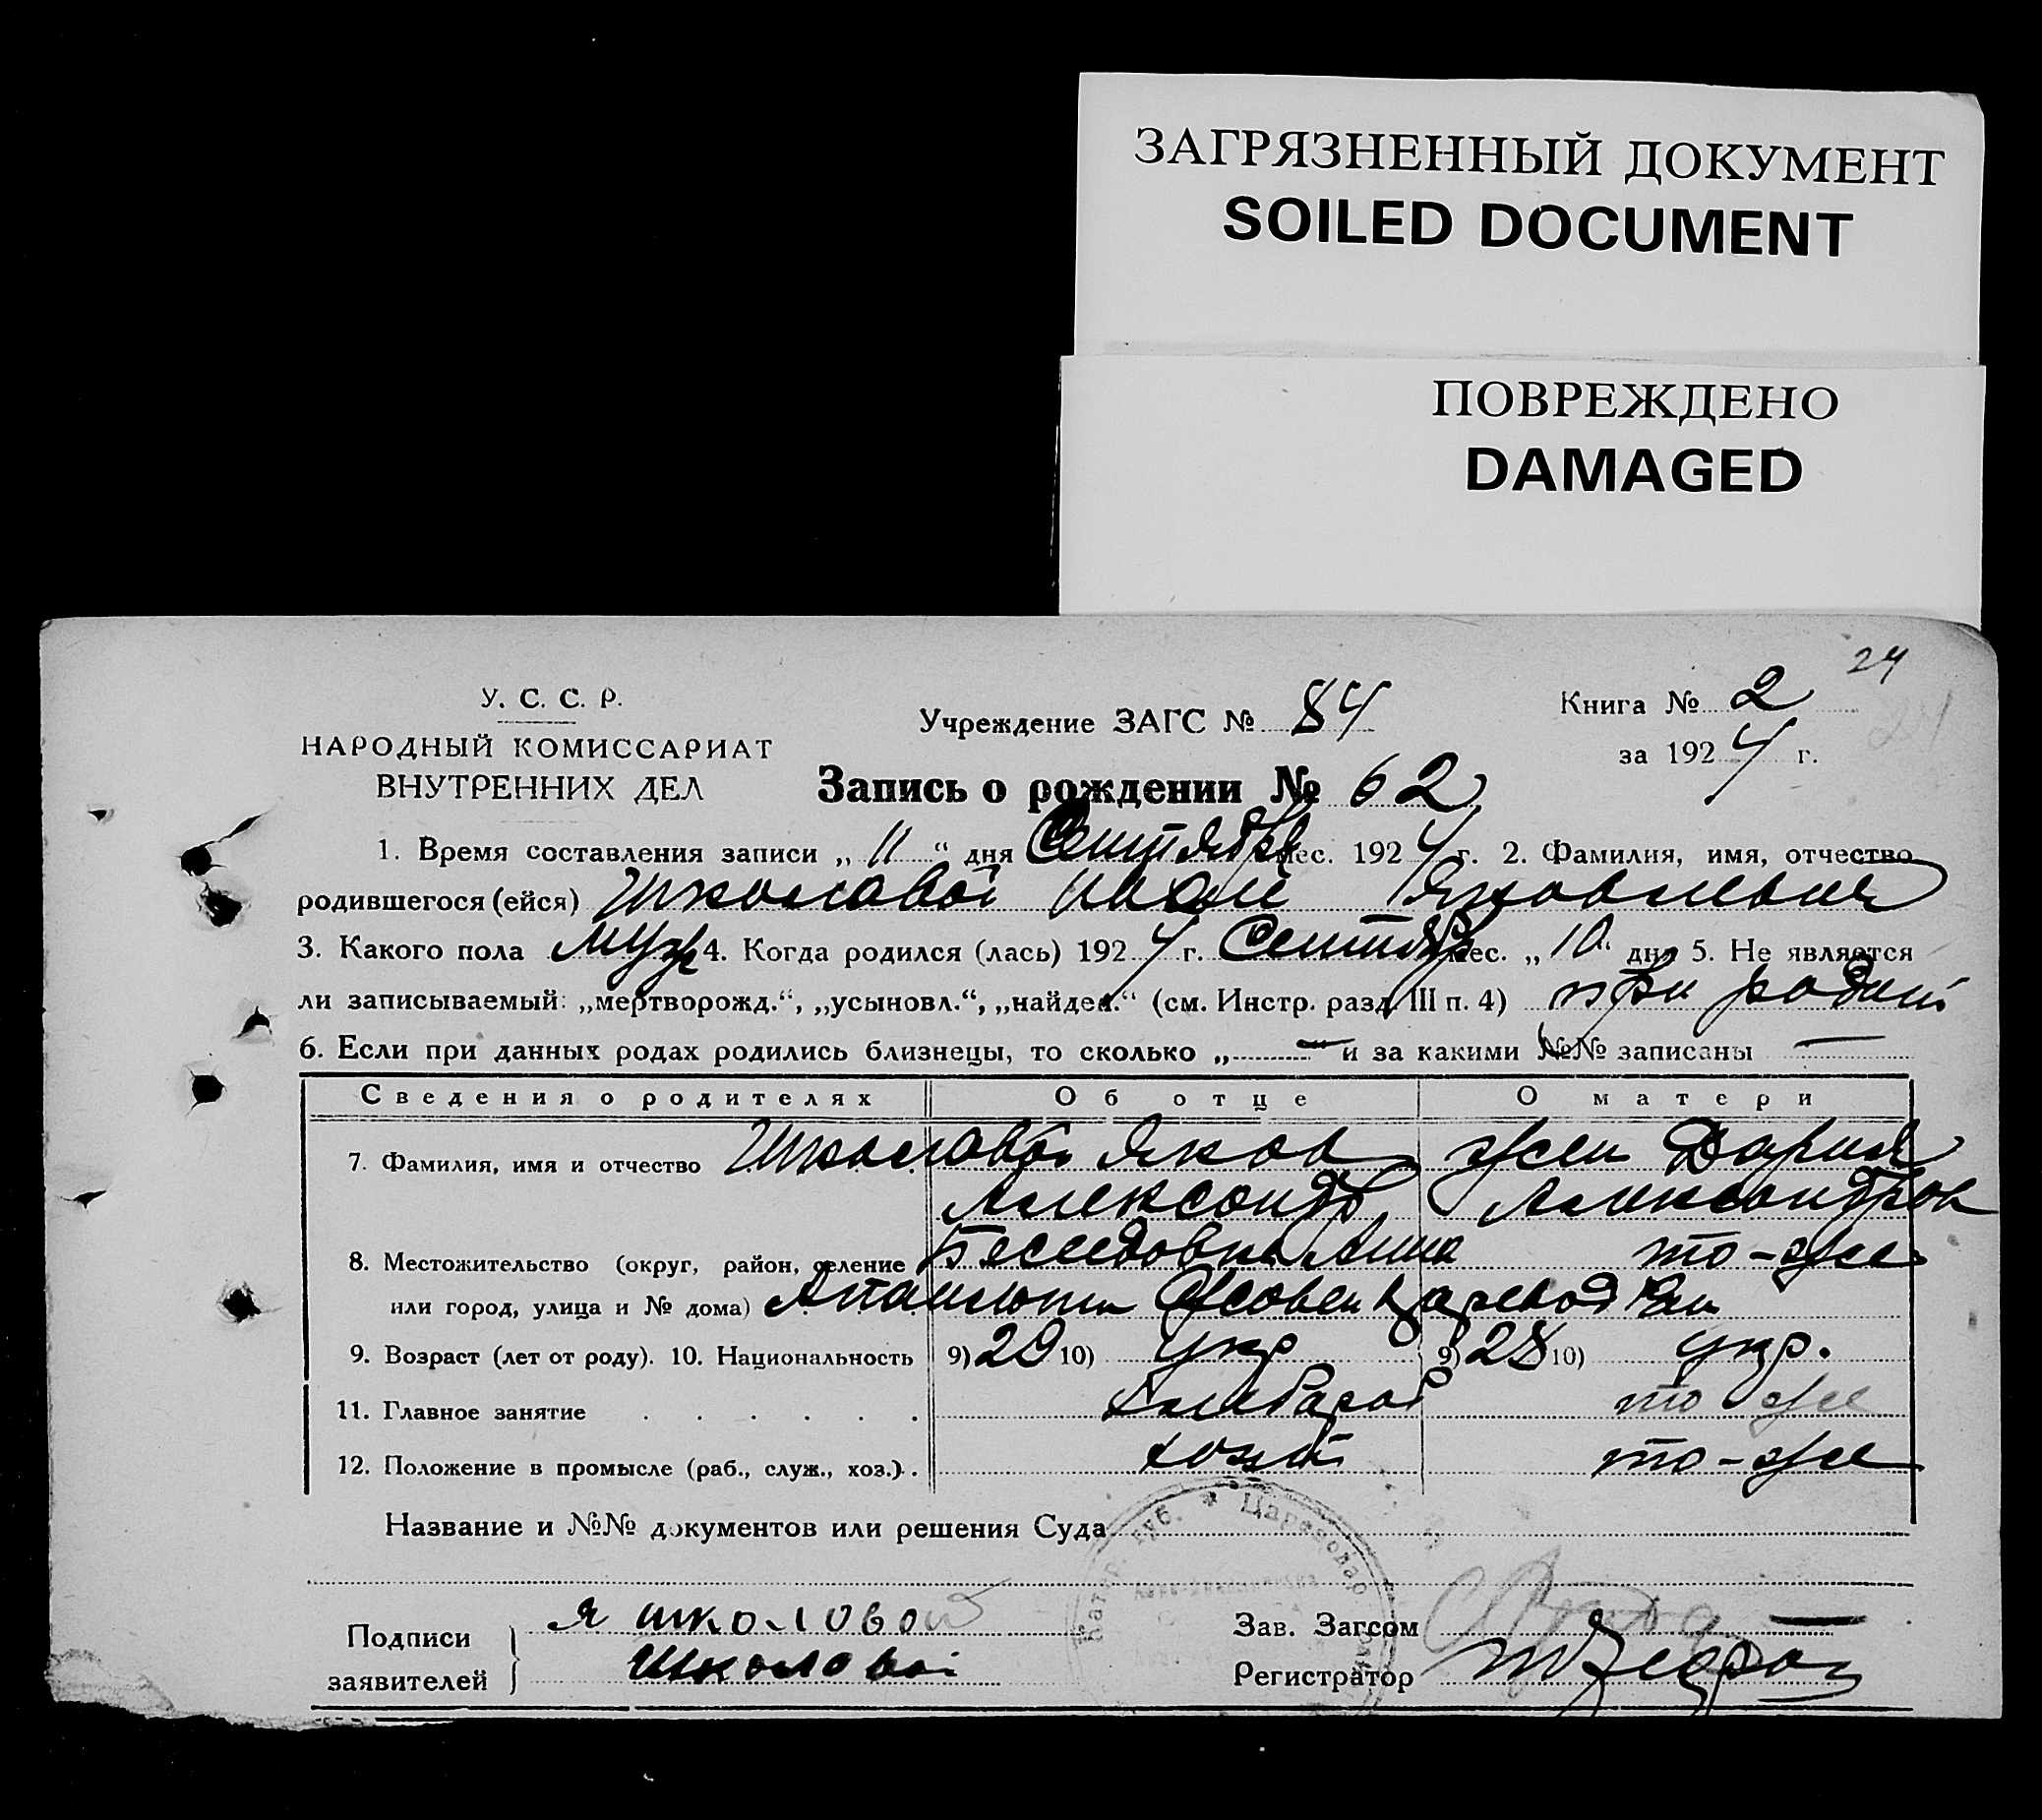 ЗАГРЯЗНЕННЫЙ ДОКУМЕНТ
SOILED DOCUMENT
ПОВРЕЖДЕНО
DAMAGED
24
У. С. С. Р.
НАРОДНЫЙ КОМИССАРИАТ
ВНУТРЕННИХ ДЕЛ
Учреждение ЗАГС № 84
Книга № 2
за 1924 г.
Запись о рождении № 62
1. Время составления записи „11“ дня Сентября мес. 1924 г. 2. Фамилия, имя, отчество
родившегося (ейся) Школовой Иван Яковлевич
3. Какого пола муж 4. Когда родился (лась) 1924 г. Сентябр мес. „10“ дня 5. Не является
ли записываемый: „мертворожд.“, „усыновл.“, „найден.“ (см. Инстр. разд. III п. 4) при
6. Если при данных родах родились близнецы, то сколько „ — и за какими №№ записаны —
Сведения о родителях Об отце О матери
7. Фамилия, имя и отчество Школовой Яков жен Дария
Александр Александров
8. Местожительство (округ, район, селение то-же
или город, улица и № дома)
9. Возраст (лет от роду). 10. Национальность 9) 29 10) укр 9) 28 10) укр.
11. Главное занятие Хлебороб то же
12. Положение в промысле (раб., служ., хоз.) хозяин то-же
Название и №№ документов или решения Суда
Подписи
заявителей
Я школовой
Школовой
Зав. Загсом
Регистратор